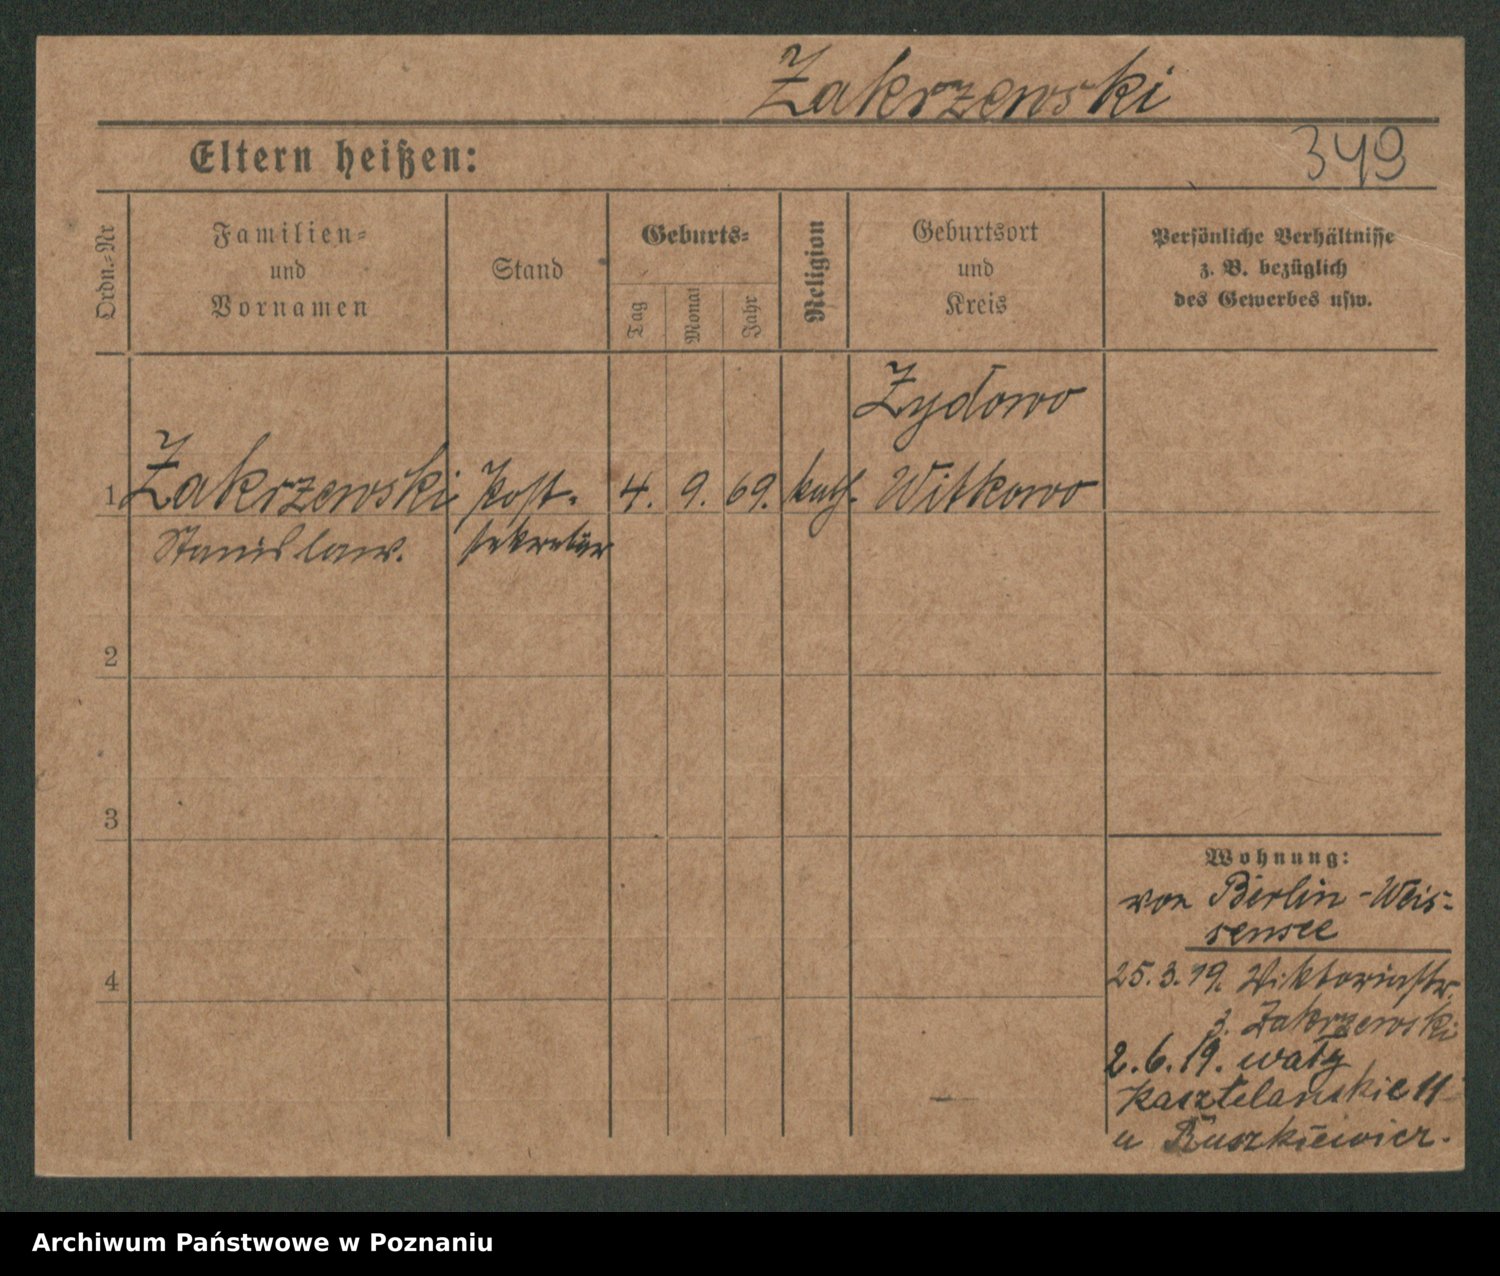 Zakrzewski
Eltern heißen:
349
Ordn.-Nr
Familien-
und
Vornamen
Stand
Geburts-
Tag
Monat
Jahr
Religion
Geburtsort
und
Kreis
Persönliche Verhältnisse
z. B. bezüglich
des Gewerbes usw.
Żydowo
1 Zakrzewski Post- 4. 9. 69. kath. Witkowo
Stanislaw. sekretär
2
3
4
Wohnung:
von Berlin-Weis-
sensee
25.3.19. Viktoriastr.
3. Zakrzewski
2.6.19. wały
Kasztelańskie 11
u Ruszkiewicz.
Archiwum Państwowe w Poznaniu